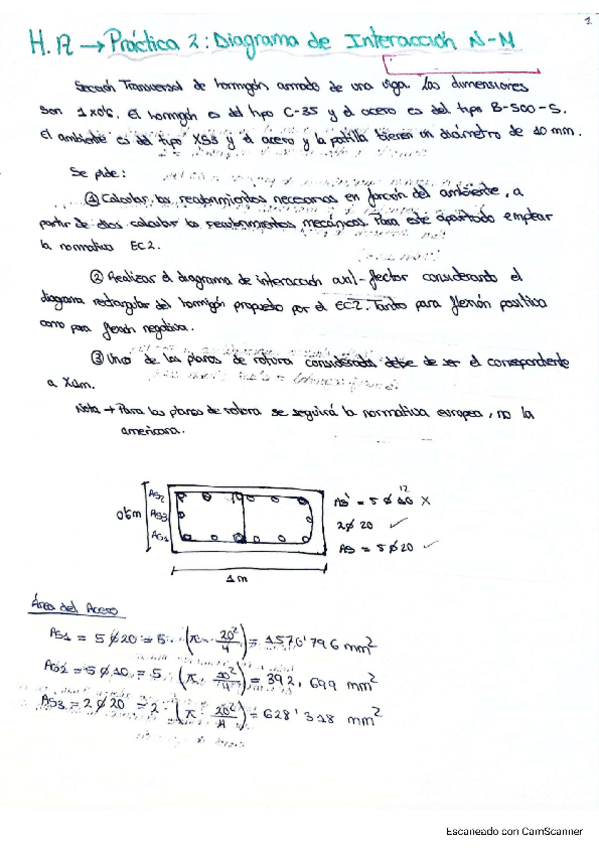 1
H.A → Práctica 2: Diagrama de Interacción N-M
Sección Transversal de hormigón armado de una viga. Las dimensiones
son 1x0'6. El hormigón es del tipo C-35 y el acero es del tipo B-500-S.
El ambiente es del tipo XS3 y el acero y la patilla tienen un diámetro de 10 mm.
Se pide:
① Calcular los recubrimientos necesarios en función del ambiente, a
partir de ellos calcular los recubrimientos mecánicos. Para este apartado emplear
la normativa EC2.
② Realizar el diagrama de interacción axil-flector considerando el
diagrama rectangular del hormigón propuesto por el EC2. Tanto para flexión positiva
como para flexión negativa.
③ Uno de los planos de rotura considerados debe de ser el correspondiente
a Xlim.
Nota → Para los planos de rotura se seguirá la normativa europea, no la
americana.
As2
12
As' = 5 ø 10 X
0'6m
As3
2ø20 ✓
As1
As = 5ø20 ✓
1m
Área del Acero
As1 = 5ø20 = 5 · (π · 20²/4) = 1570'796 mm²
As2 = 5ø10 = 5 · (π · 10²/4) = 392,699 mm²
As3 = 2ø20 = 2 · (π · 20²/4) = 628'318 mm²
Escaneado con CamScanner